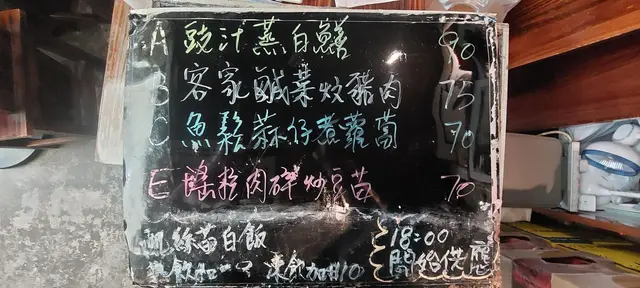 A 豉汁蒸白鱔 90
B 客家鹹菜炆豬肉 75
C 魚鬆蒜仔煮蘿蔔 70
E 瑤粒肉碎炒豆苗 70
絲苗白飯
飲和 凍飲加$10
18:00
開始供應